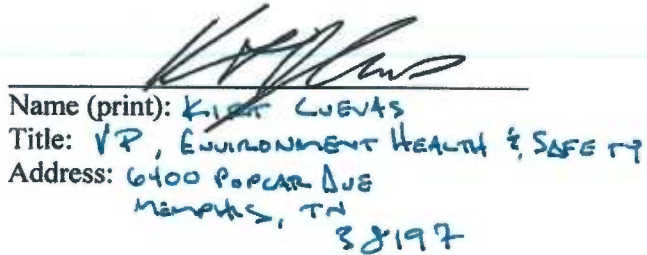 Name (print): KIRT CUEVAS
Title: VP, ENVIRONMENT HEALTH & SAFETY
Address: 6400 POPLAR AVE
MEMPHIS, TN
38197